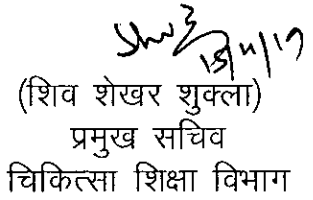 15/11/19
(शिव शेखर शुक्ला)
प्रमुख सचिव
चिकित्सा शिक्षा विभाग